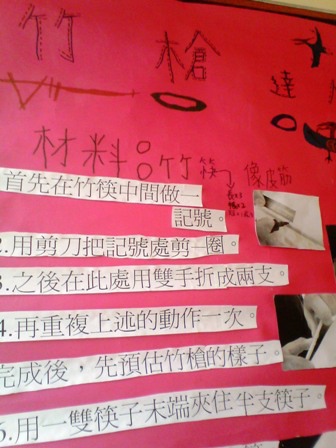 竹槍達
材料:竹筷、像皮筋
首先在竹筷中間做一
記號。
2.用剪刀把記號處剪一圈。
3.之後在此處用雙手折成兩支。
4.再重複上述的動作一次。
完成後，先預估竹槍的樣子。
5.用一雙筷子末端夾住半支筷子。